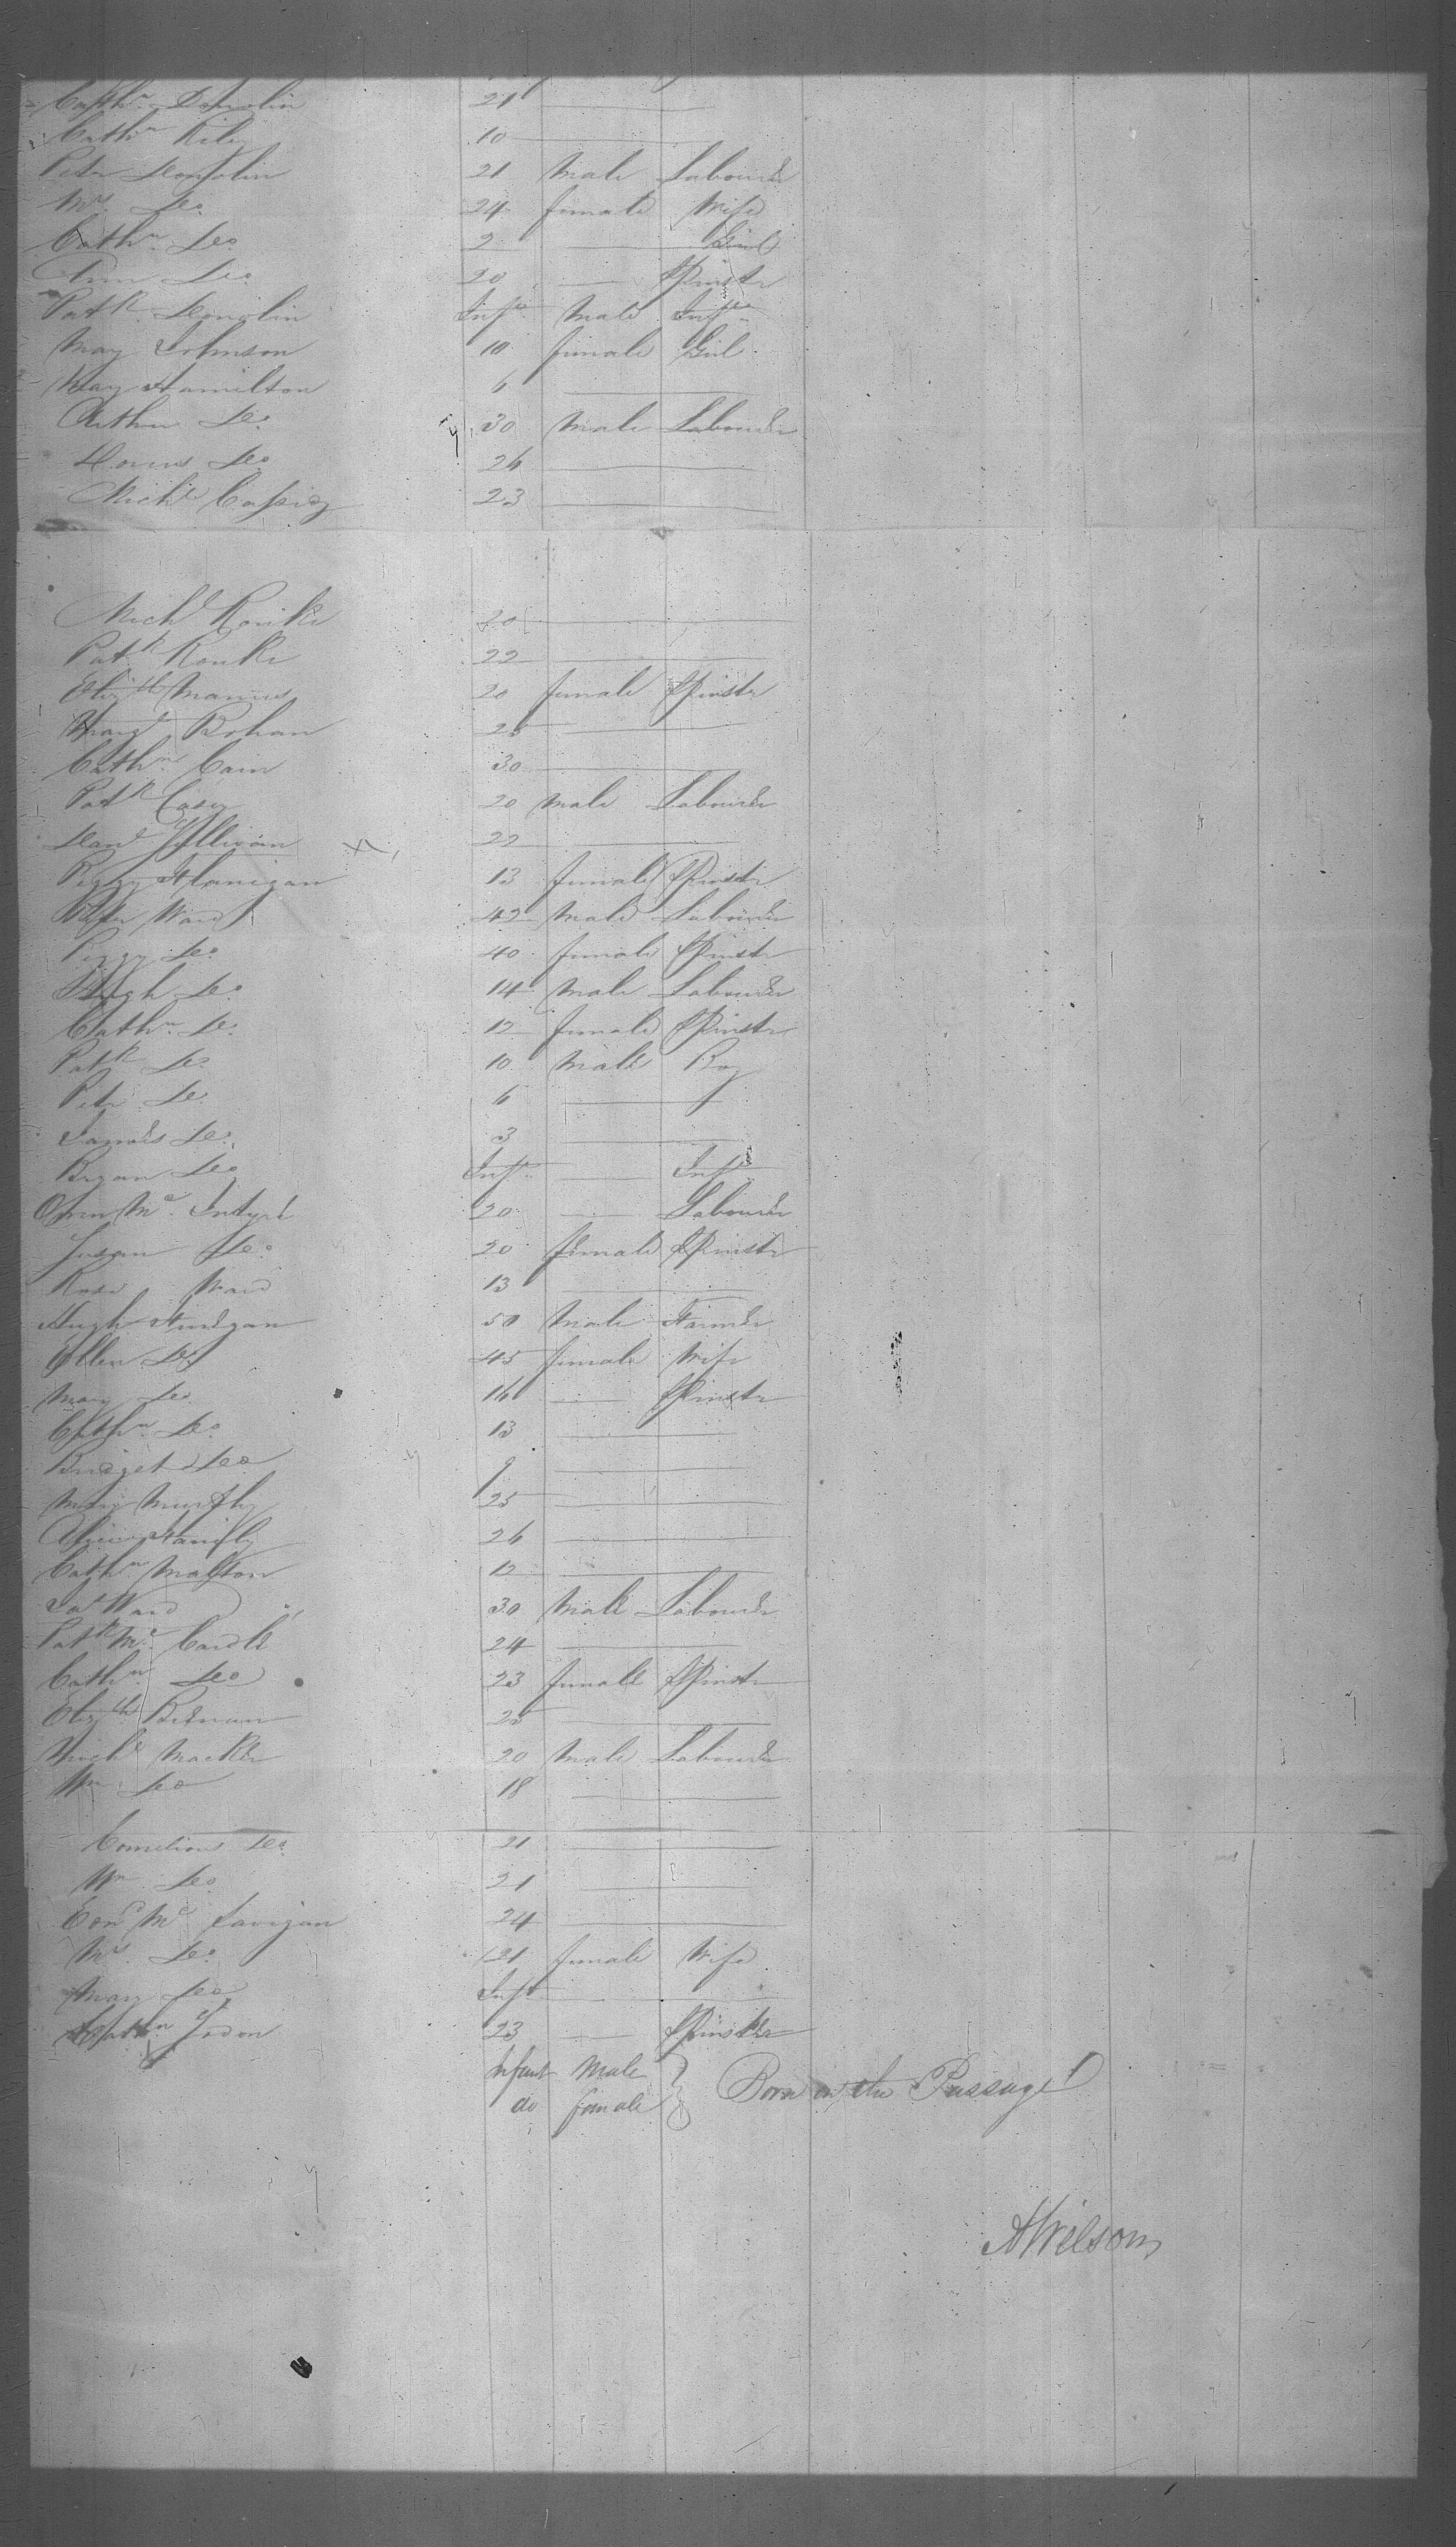 Cathn. Donolin 21
Cathn 10
Petr Donolin 21 Male Labourer
Mrs. Do. 24 female Wife
Cathn. Do. 2 Girl
Ann Do. 20 Spinstr
Patk. Donolin Inft. Male Inft.
Mary Johnson 10 female Girl
Mary Hamilton 6
Arthur Do. 30 Male Labourer
Do. 26
Michl. Cassidy 23
Michl Rourke 20
Patk Rourke 22
Elizth Manus 20 female Spinstr
Margt Bohan 25
Cathn. Cain 30
Patk Casey 20 male Labourer
Danl Sullivan 22
Peggy Flanigan 13 female Spinstr
Peter Ward 42 Male Labourer
Peggy Do. 40 female Spinstr
Hugh Do. 14 Male Labourer
Cathn. Do. 12 female Spinstr
Patk Do. 10 Male Boy
Petr Do. 6
James Do. 3
Bryan Do. Inft. Inft.
Owen Mc. Intyre 20 Labourer
Susan Do. 20 female Spinstr
Rose Ward 13
Hugh 50 Male Farmer
Ellen Do. 45 female Wife
Mary Do. 16 Spinstr
Cathn Do. 13
Bridget Do 9
Mary Murphy 25
26
Cathn 12
Jas Ward 30 Male Labourer
Patk Mc. Cardle 24
Cathn Do 23 female Spinstr
Elizth 25
Michl 20 Male Labourer
Wm Do 18
Cornelious Do. 21
Wm Do. 21
Mc 24
Mrs. Do. 21 female Wife
Mary Do Inft
Cathn 23 Spinster
Infant Male
do female } Born on the Passage
A Wilson